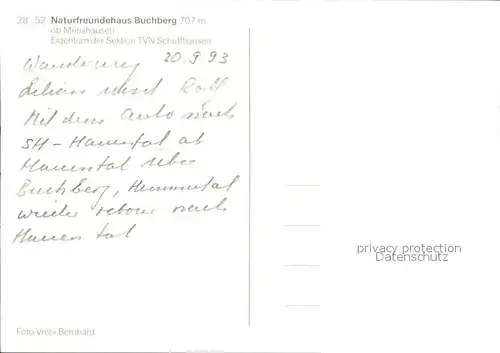 28-52 Naturfreundehaus Buchberg 707 m
ob Merishausen
Eigentum der Sektion TVN Schaffhausen
Wanderung 20.9.93
Lilian und Rolf
Mit dem Auto nach
SH-Hauental ab
Hauental über
Buchberg, Hemmental
wieder retour nach
Hauental
privacy protection
Datenschutz
Foto Vreni Bernhard